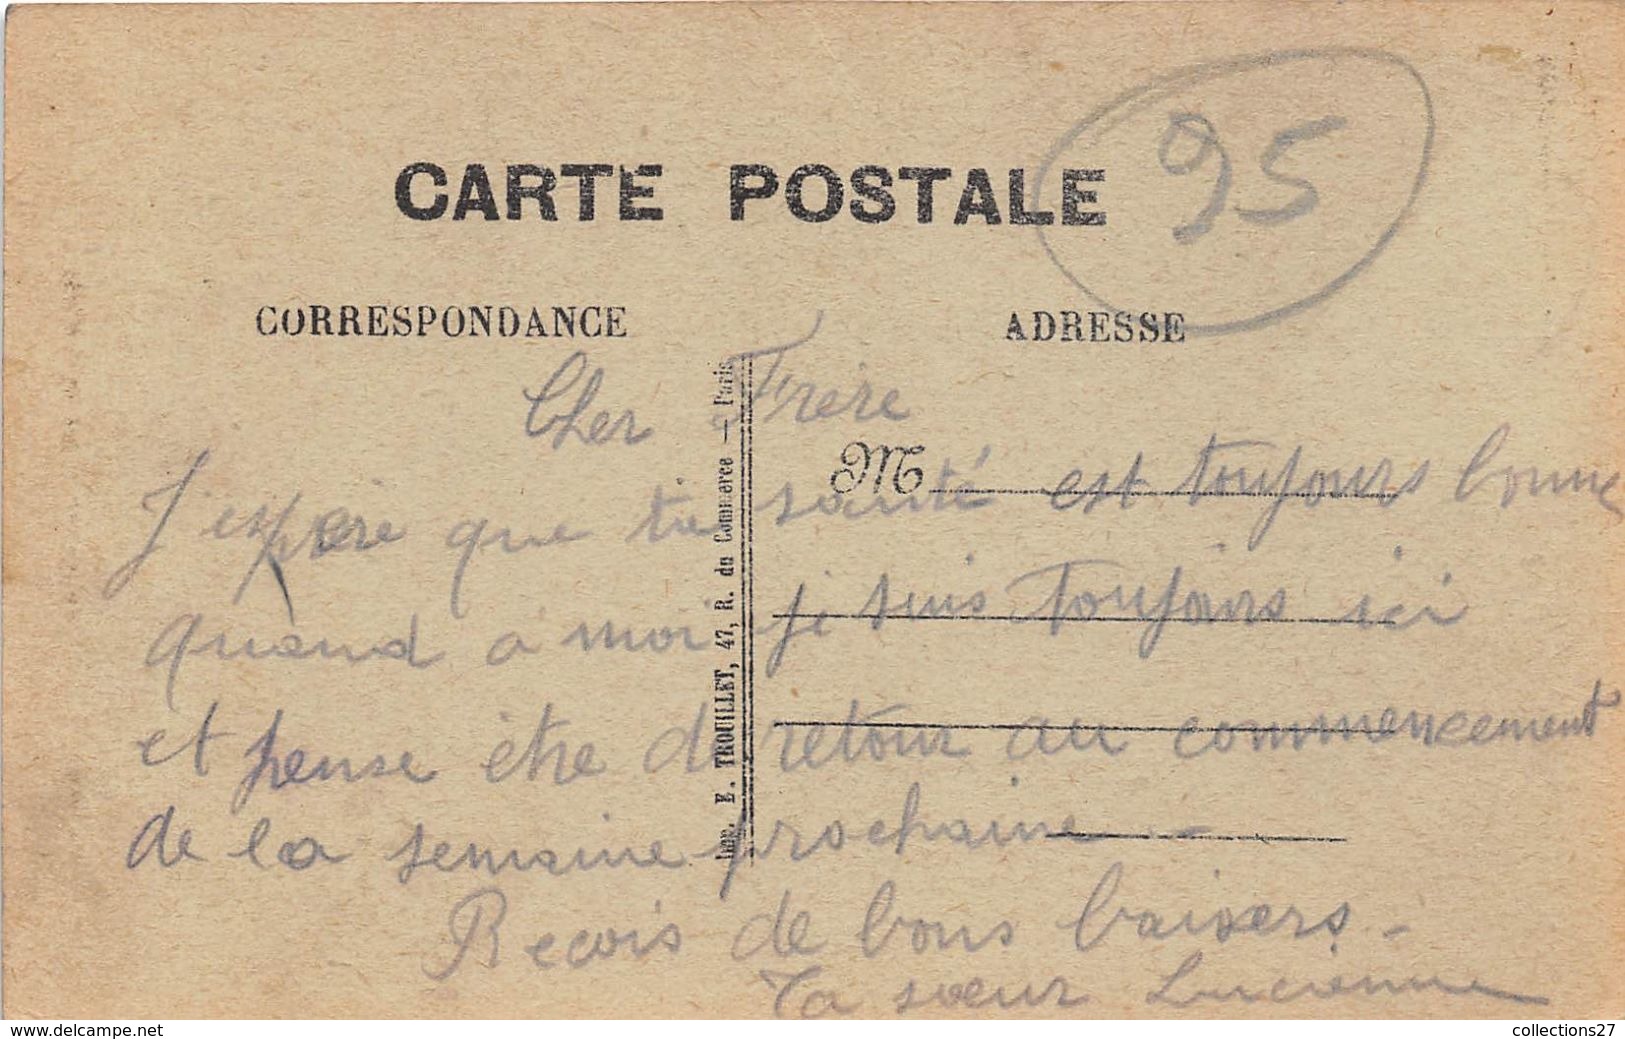 95
CARTE POSTALE
CORRESPONDANCE
ADRESSE
Cher Frère
M
J'espère que ta santé est toujours bonne
quand a moi je suis toujours ici
et pense être de retour au commencement
de la semaine prochaine -
Recois de bons baisers -
Ta sœur Lucienne
Imp. E. TROUILLET, 47, R. du Commerce — Paris
collections27